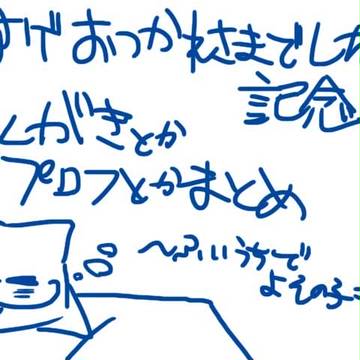 おつかれさまでした
記念
がきとか
プロフとかまとめ
〜ふいうちで
よその子